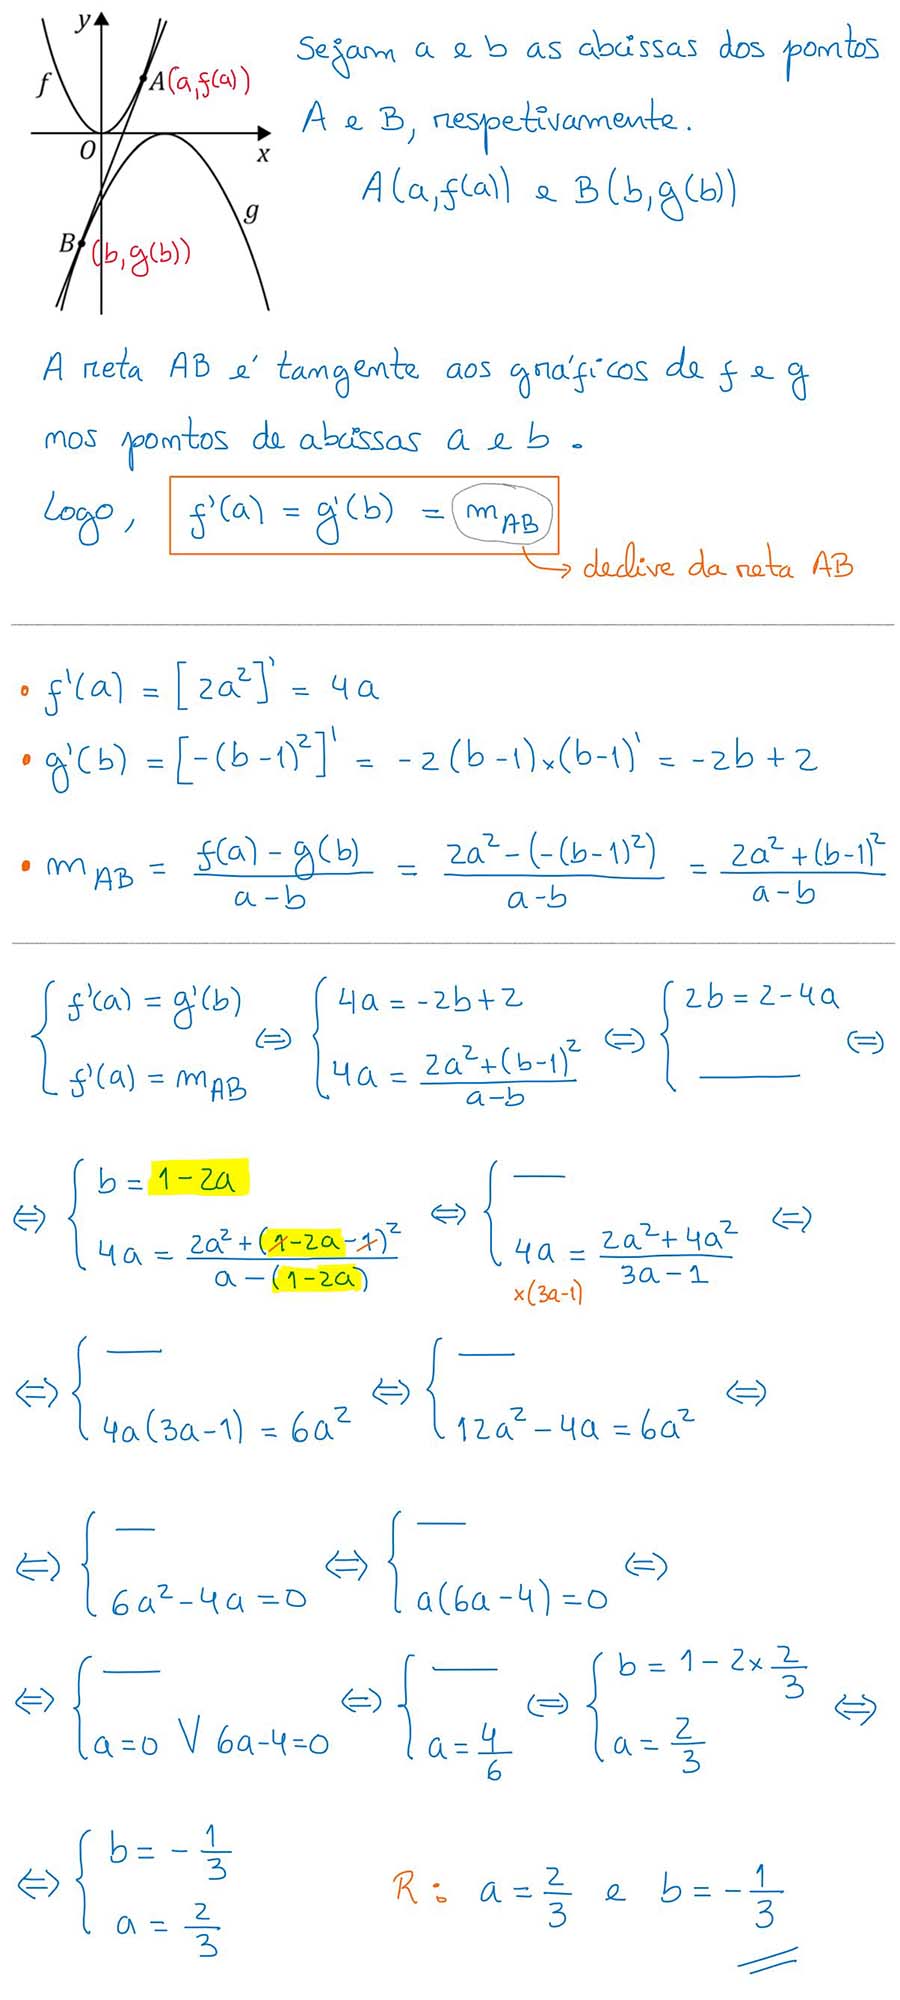 y
f
A(a,f(a))
O
x
g
B(b,g(b))
Sejam a e b as abcissas dos pontos
A e B, respetivamente.
A(a,f(a)) e B(b,g(b))
A reta AB é tangente aos gráficos de f e g
nos pontos de abcissas a e b.
Logo, f'(a) = g'(b) = m_AB
→ declive da reta AB
• f'(a) = [2a²]' = 4a
• g'(b) = [-(b-1)²]' = -2(b-1)×(b-1)' = -2b+2
• m_AB = (f(a)-g(b))/(a-b) = (2a²-(-(b-1)²))/(a-b) = (2a²+(b-1)²)/(a-b)
{ f'(a) = g'(b) ⇔ { 4a = -2b+2 ⇔ { 2b = 2-4a ⇔
f'(a) = m_AB 4a = (2a²+(b-1)²)/(a-b) ——
⇔ { b = 1-2a ⇔ { —— ⇔
4a = (2a²+(1-2a-1)²)/(a-(1-2a)) 4a = (2a²+4a²)/(3a-1)
×(3a-1)
⇔ { —— ⇔ { —— ⇔
4a(3a-1) = 6a² 12a²-4a = 6a²
⇔ { —— ⇔ { —— ⇔
6a²-4a=0 a(6a-4)=0
⇔ { —— ⇔ { —— ⇔ { b = 1-2×2/3 ⇔
a=0 ∨ 6a-4=0 a=4/6 a=2/3
⇔ { b = -1/3
a = 2/3
R: a = 2/3 e b = -1/3